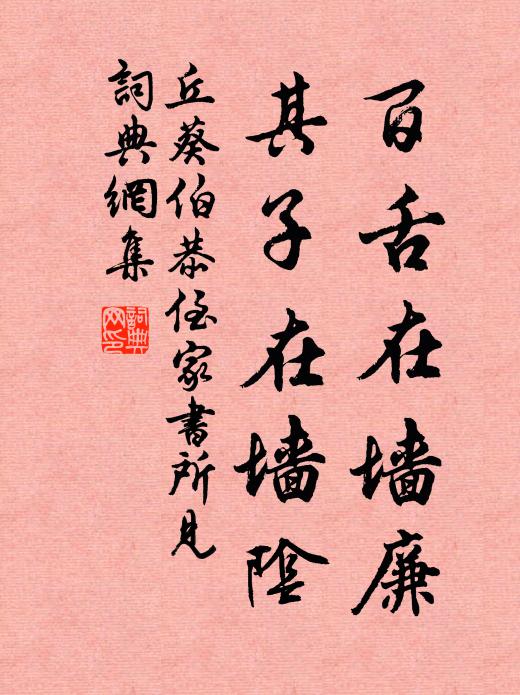 百舌在墙廉
其子在墙陰
丘葵伯恭侄家書所見
詞典網集
詞典
网印